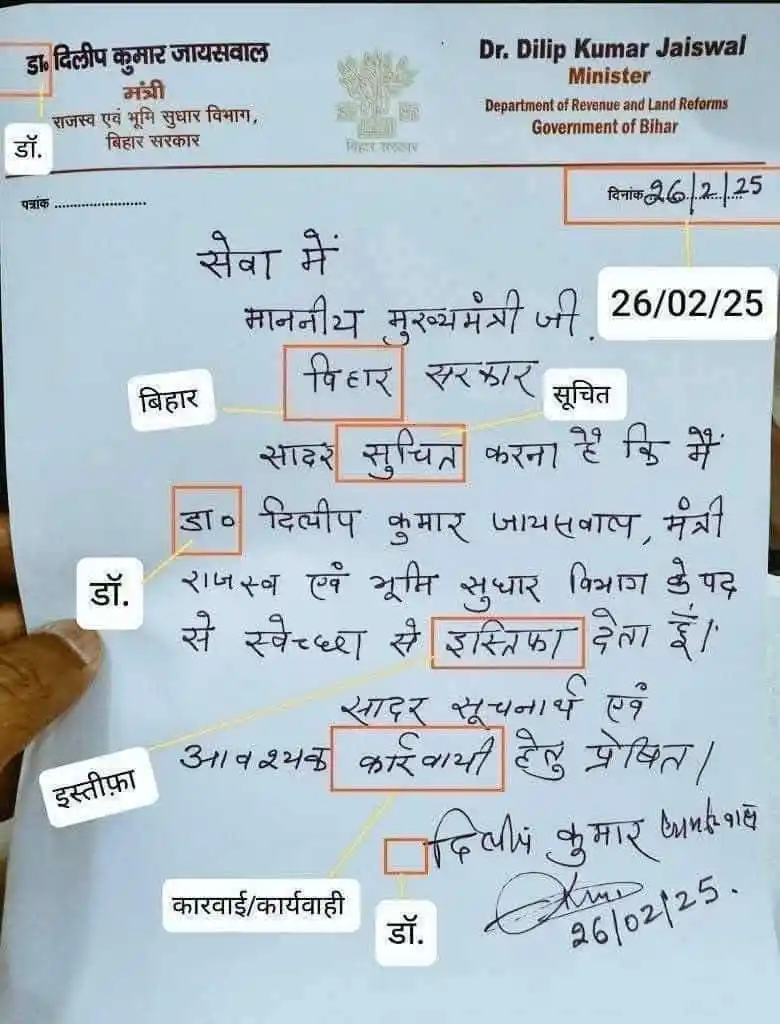 डा० दिलीप कुमार जायसवाल
मंत्री
राजस्व एवं भूमि सुधार विभाग,
बिहार सरकार
डॉ.
बिहार सरकार
Dr. Dilip Kumar Jaiswal
Minister
Department of Revenue and Land Reforms
Government of Bihar
पत्रांक .......................
दिनांक 26/2/25
26/02/25
सेवा में
माननीय मुख्यमंत्री जी.
बिहार
विहार सरकार
सूचित
सादर सुचित करना है कि मैं
डा० दिलीप कुमार जायसवाल, मंत्री
डॉ.
राजस्व एवं भूमि सुधार विभाग के पद
से स्वेच्छा से इस्तिफा देता हूँ।
इस्तीफ़ा
सादर सूचनार्थ एवं
आवश्यक कार्रवायी हेतु प्रेषित।
कारवाई/कार्यवाही
दिलीप कुमार जायसवाल
डॉ.
26/02/25.